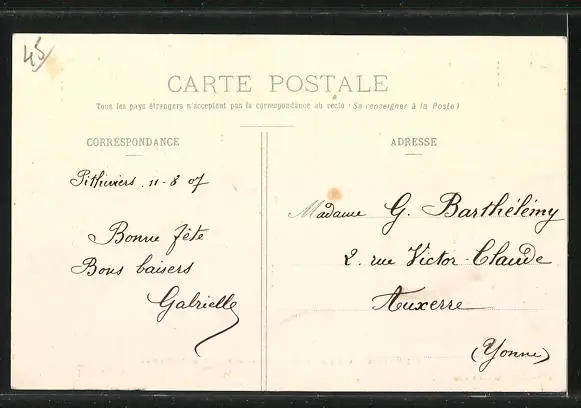 45
CARTE POSTALE
Tous les pays étrangers n'acceptent pas la correspondance au recto (Se renseigner à la Poste)
CORRESPONDANCE
Pithiviers. 11-8 07
Bonne fête
Bons baisers
Gabrielle
ADRESSE
Madame G. Barthélémy
2. rue Victor-Claude
Auxerre
(Yonne)